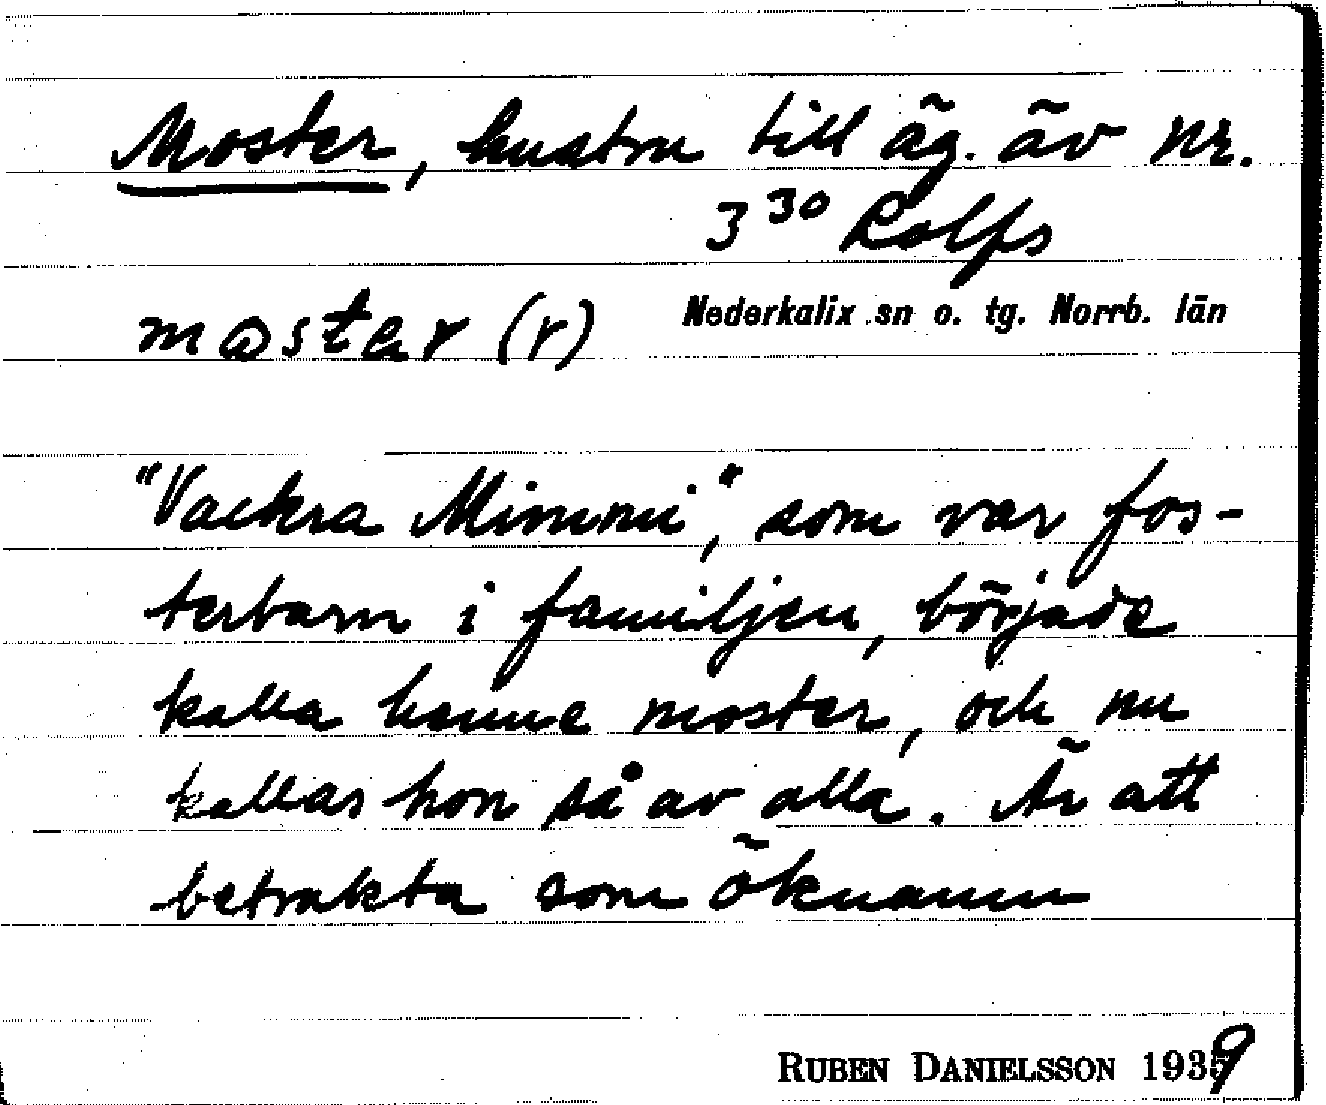 Moster, hustru till äg. äv nr.
3³⁰ Rolfs
møstar (r) Nederkalix sn o. tg. Norrb. län
"Vackra Mimmi", som var fos-
terbarn i familjen, började
kalla henne moster, och nu
kallas hon så av alla. Är att
betrakta som öknamn
RUBEN DANIELSSON 1939